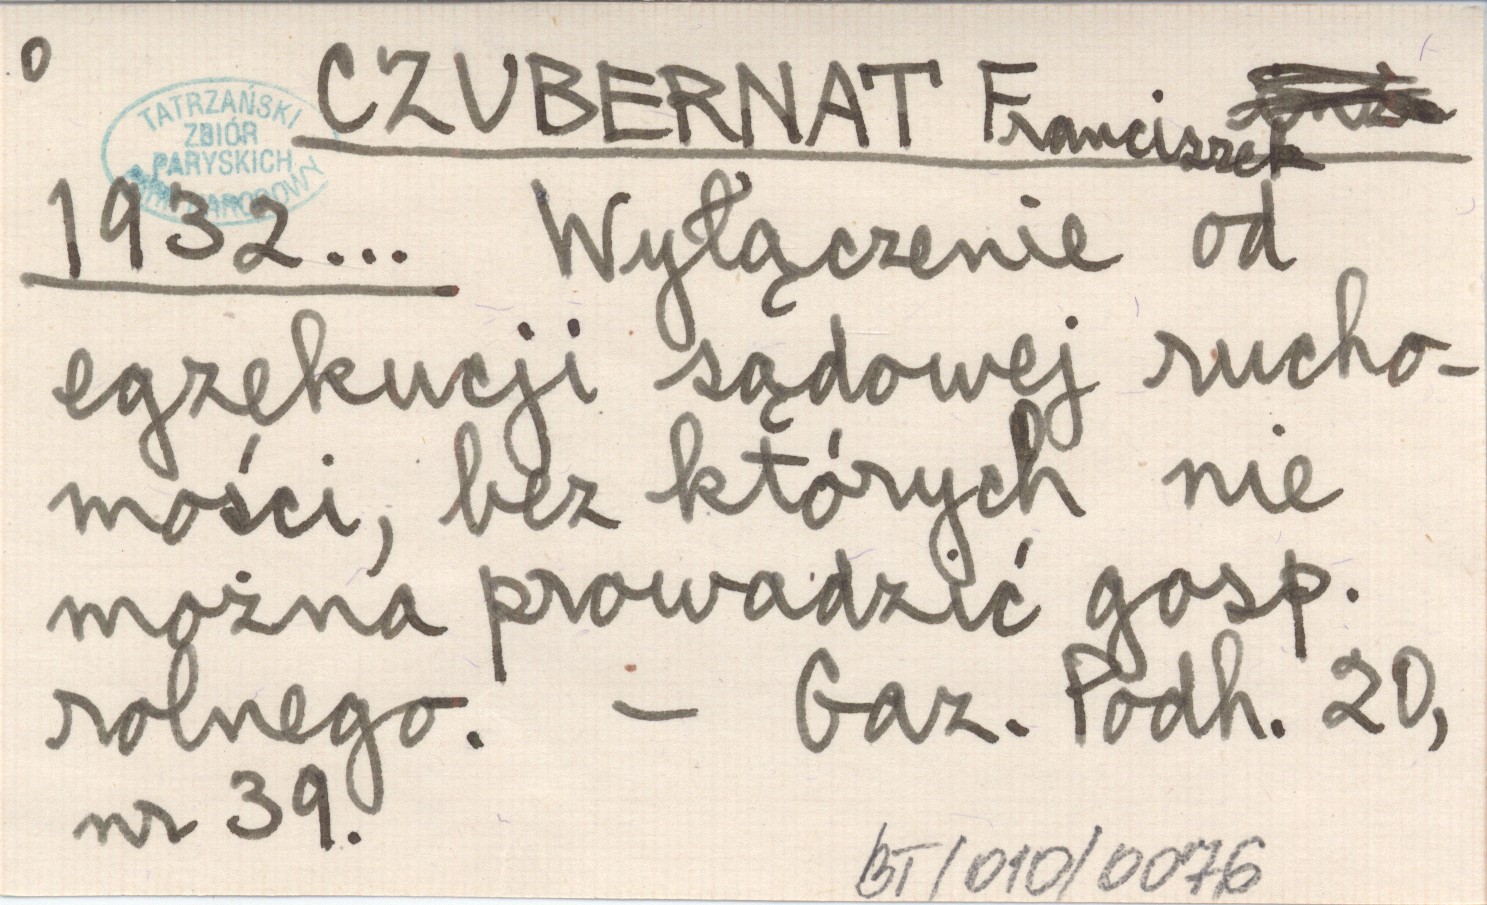 o
CZUBERNAT Franciszek
TATRZAŃSKI
ZBIÓR
PARYSKICH
1932... Wyłączenie od
egzekucji sądowej rucho-
mości, bez których nie
można prowadzić gosp.
rolnego. – Gaz. Podh. 20,
nr 39.
BT/010/0076